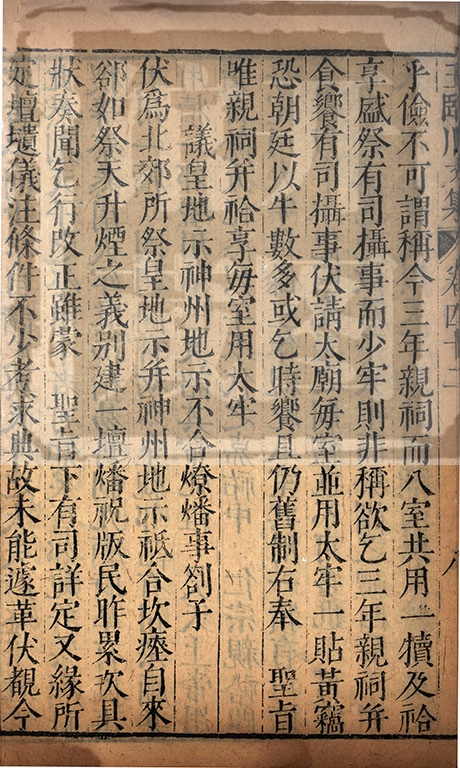 王臨川文集 卷四十二 八
乎儉不可謂稱今三年親祠而八室共用一犢及祫
享盛祭有司攝事而少牢則非稱欲乞三年親祠并
食饗有司攝事伏請太廟每室並用太牢一貼黃竊
恐朝廷以牛數多或乞時饗且仍舊制右奉 聖旨
唯親祠并祫享每室用太牢
議皇地示神州地示不合燎燔事劄子
伏爲北郊所祭皇地示并神州地示祗合坎瘞自來
郤如祭天升煙之義别建一壇燔祝版民昨累次具
狀奏聞乞行改正雖蒙 聖旨下有司詳定又緣所
定壇壝儀注條件不少考求典故未能遽革伏覩今